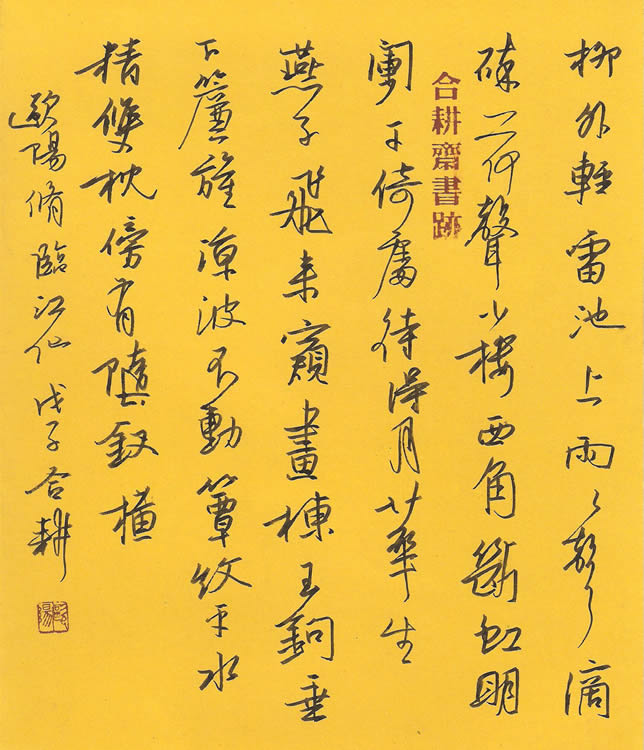 柳外輕雷池上雨々聲滴
碎荷聲小樓西角斷虹明
合耕齋書跡
闌干倚處待得月華生
燕子飛來窺畫棟玉鉤垂
下簾旌涼波不動簟紋平水
精雙枕傍有墮釵橫
歐陽脩臨江仙 戊子合耕